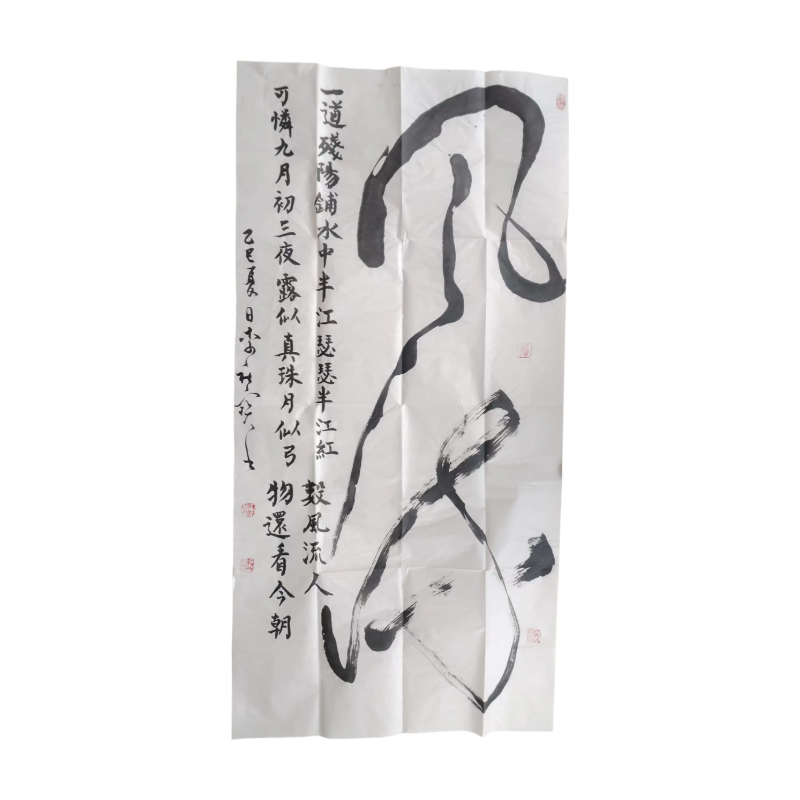 风
一道殘陽鋪水中半江瑟瑟半江紅
可憐九月初三夜露似真珠月似弓
數風流人
物還看今朝
乙巳夏日李